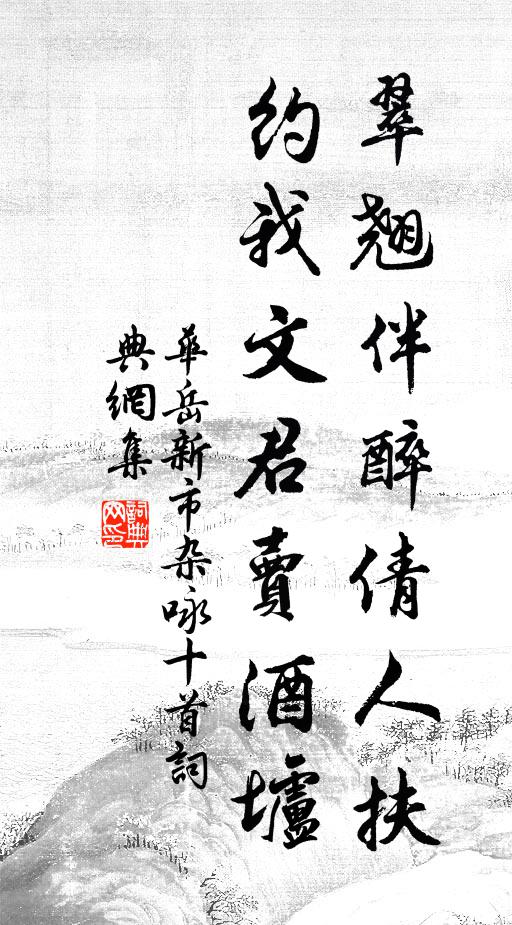 翠翹伴醉倩人扶
約我文君賣酒壚
華岳新市杂咏十首詞
典網集
詞典网印